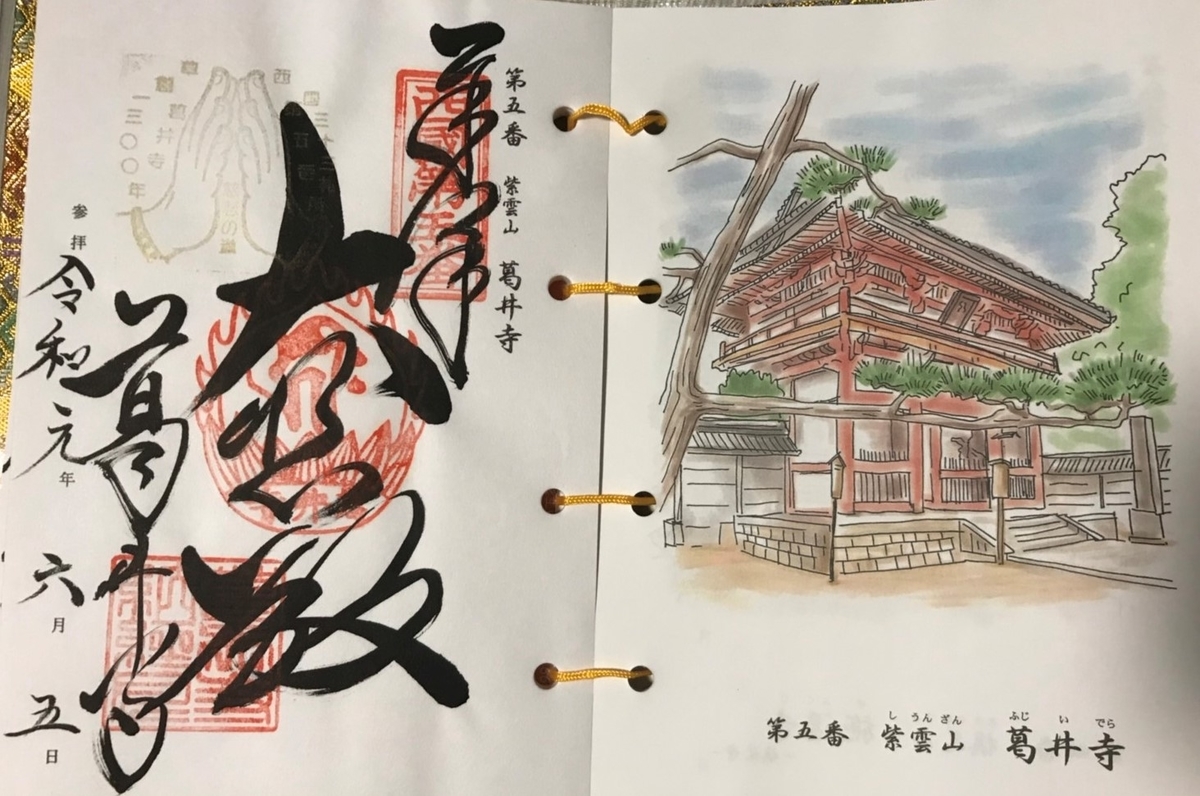 第五番 紫雲山 葛井寺
奉拝
西國第五番
大悲殿
葛井寺
西国三十三所
葛井寺
一三〇〇年
参拝 令和元年六月五日
第五番 紫雲山 葛井寺
しうんざん ふじいでら